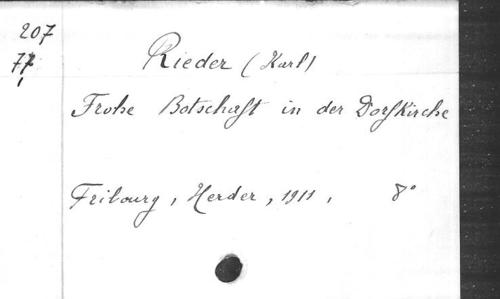 207
77
Rieder (Karl)
Frohe Botschaft in der Dorfkirche
Fribourg, Herder, 1911, 8°